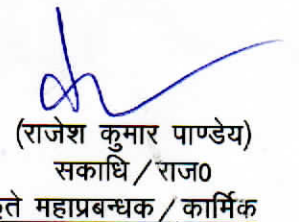 (राजेश कुमार पाण्डेय)
सकाधि / राज0
कृते महाप्रबन्धक / कार्मिक